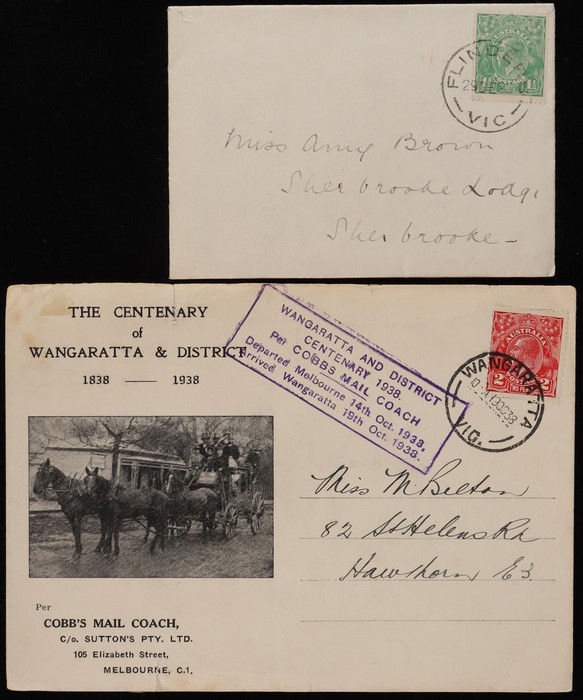 AUSTRALIA
FLINDERS
VIC
Miss Amy Brown
Sherbrooke Lodge
Sherbrooke –
THE CENTENARY
of
WANGARATTA & DISTRICT
1838 — 1938
WANGARATTA AND DISTRICT
CENTENARY 1938.
Per COBBS MAIL COACH
Departed Melbourne 14th Oct. 1938,
Arrived Wangaratta 19th Oct. 1938.
AUSTRALIA
2 2
TWO PENCE
WANGARATTA
VIC.
Miss M. Belton
82 St Helens Rd
Hawthorn E3.
Per
COBB'S MAIL COACH,
C/o. SUTTON'S PTY. LTD.
105 Elizabeth Street,
MELBOURNE, C.1.